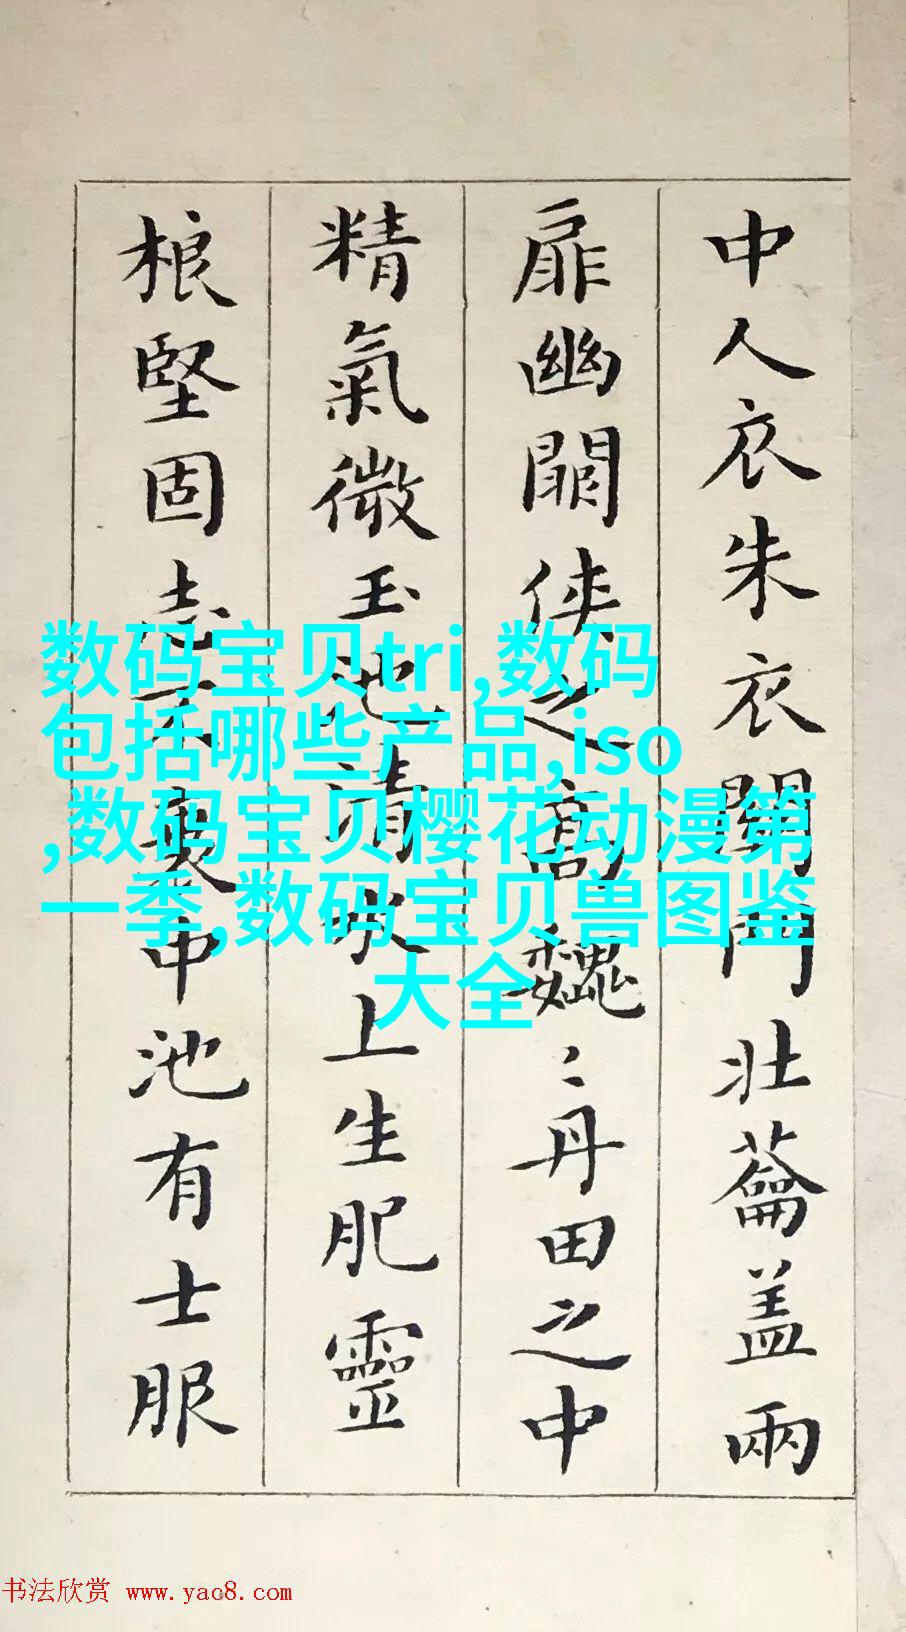 中人衣朱衣關門壯蘥盖兩
扉幽闗侠之高巍〻丹田之中
精氣微玉池清水上生肥靈
根堅固志不衰中池有士服
数码宝贝tri,数码
包括哪些产品,iso
,数码宝贝樱花动漫第
一季,数码宝贝兽图鉴
大全
书法欣赏 www.yac8.com